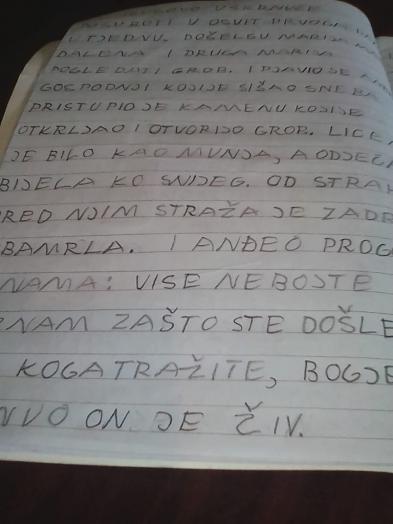 USKRNUĆE
OSVIT PRVOGA
U TJEDNU. DOŠLE SU MARIJA MA
DALENA I DRUGA MARIJA
POGLEDATI GROB. I PJAVIO JE AN
GOSPODNJI KOJI JE SIŠAO SNEBA
PRISTUPIO JE KAMENU KOJI JE
OTKRLJAO I OTVORIJO GROB. LICE
JE BILO KAO MUNJA, A ODJEĆA
BIJELA KO SNIJEG. OD STRAH
RED NJIM STRAŽA JE ZADR
BAMRLA. I ANĐEO PROG
NAMA: VISE NEBOJTE
ZNAM ZAŠTO STE DOŠLE
KOGATRAŽITE, BOGJE
NVO ON JE ŽIV.